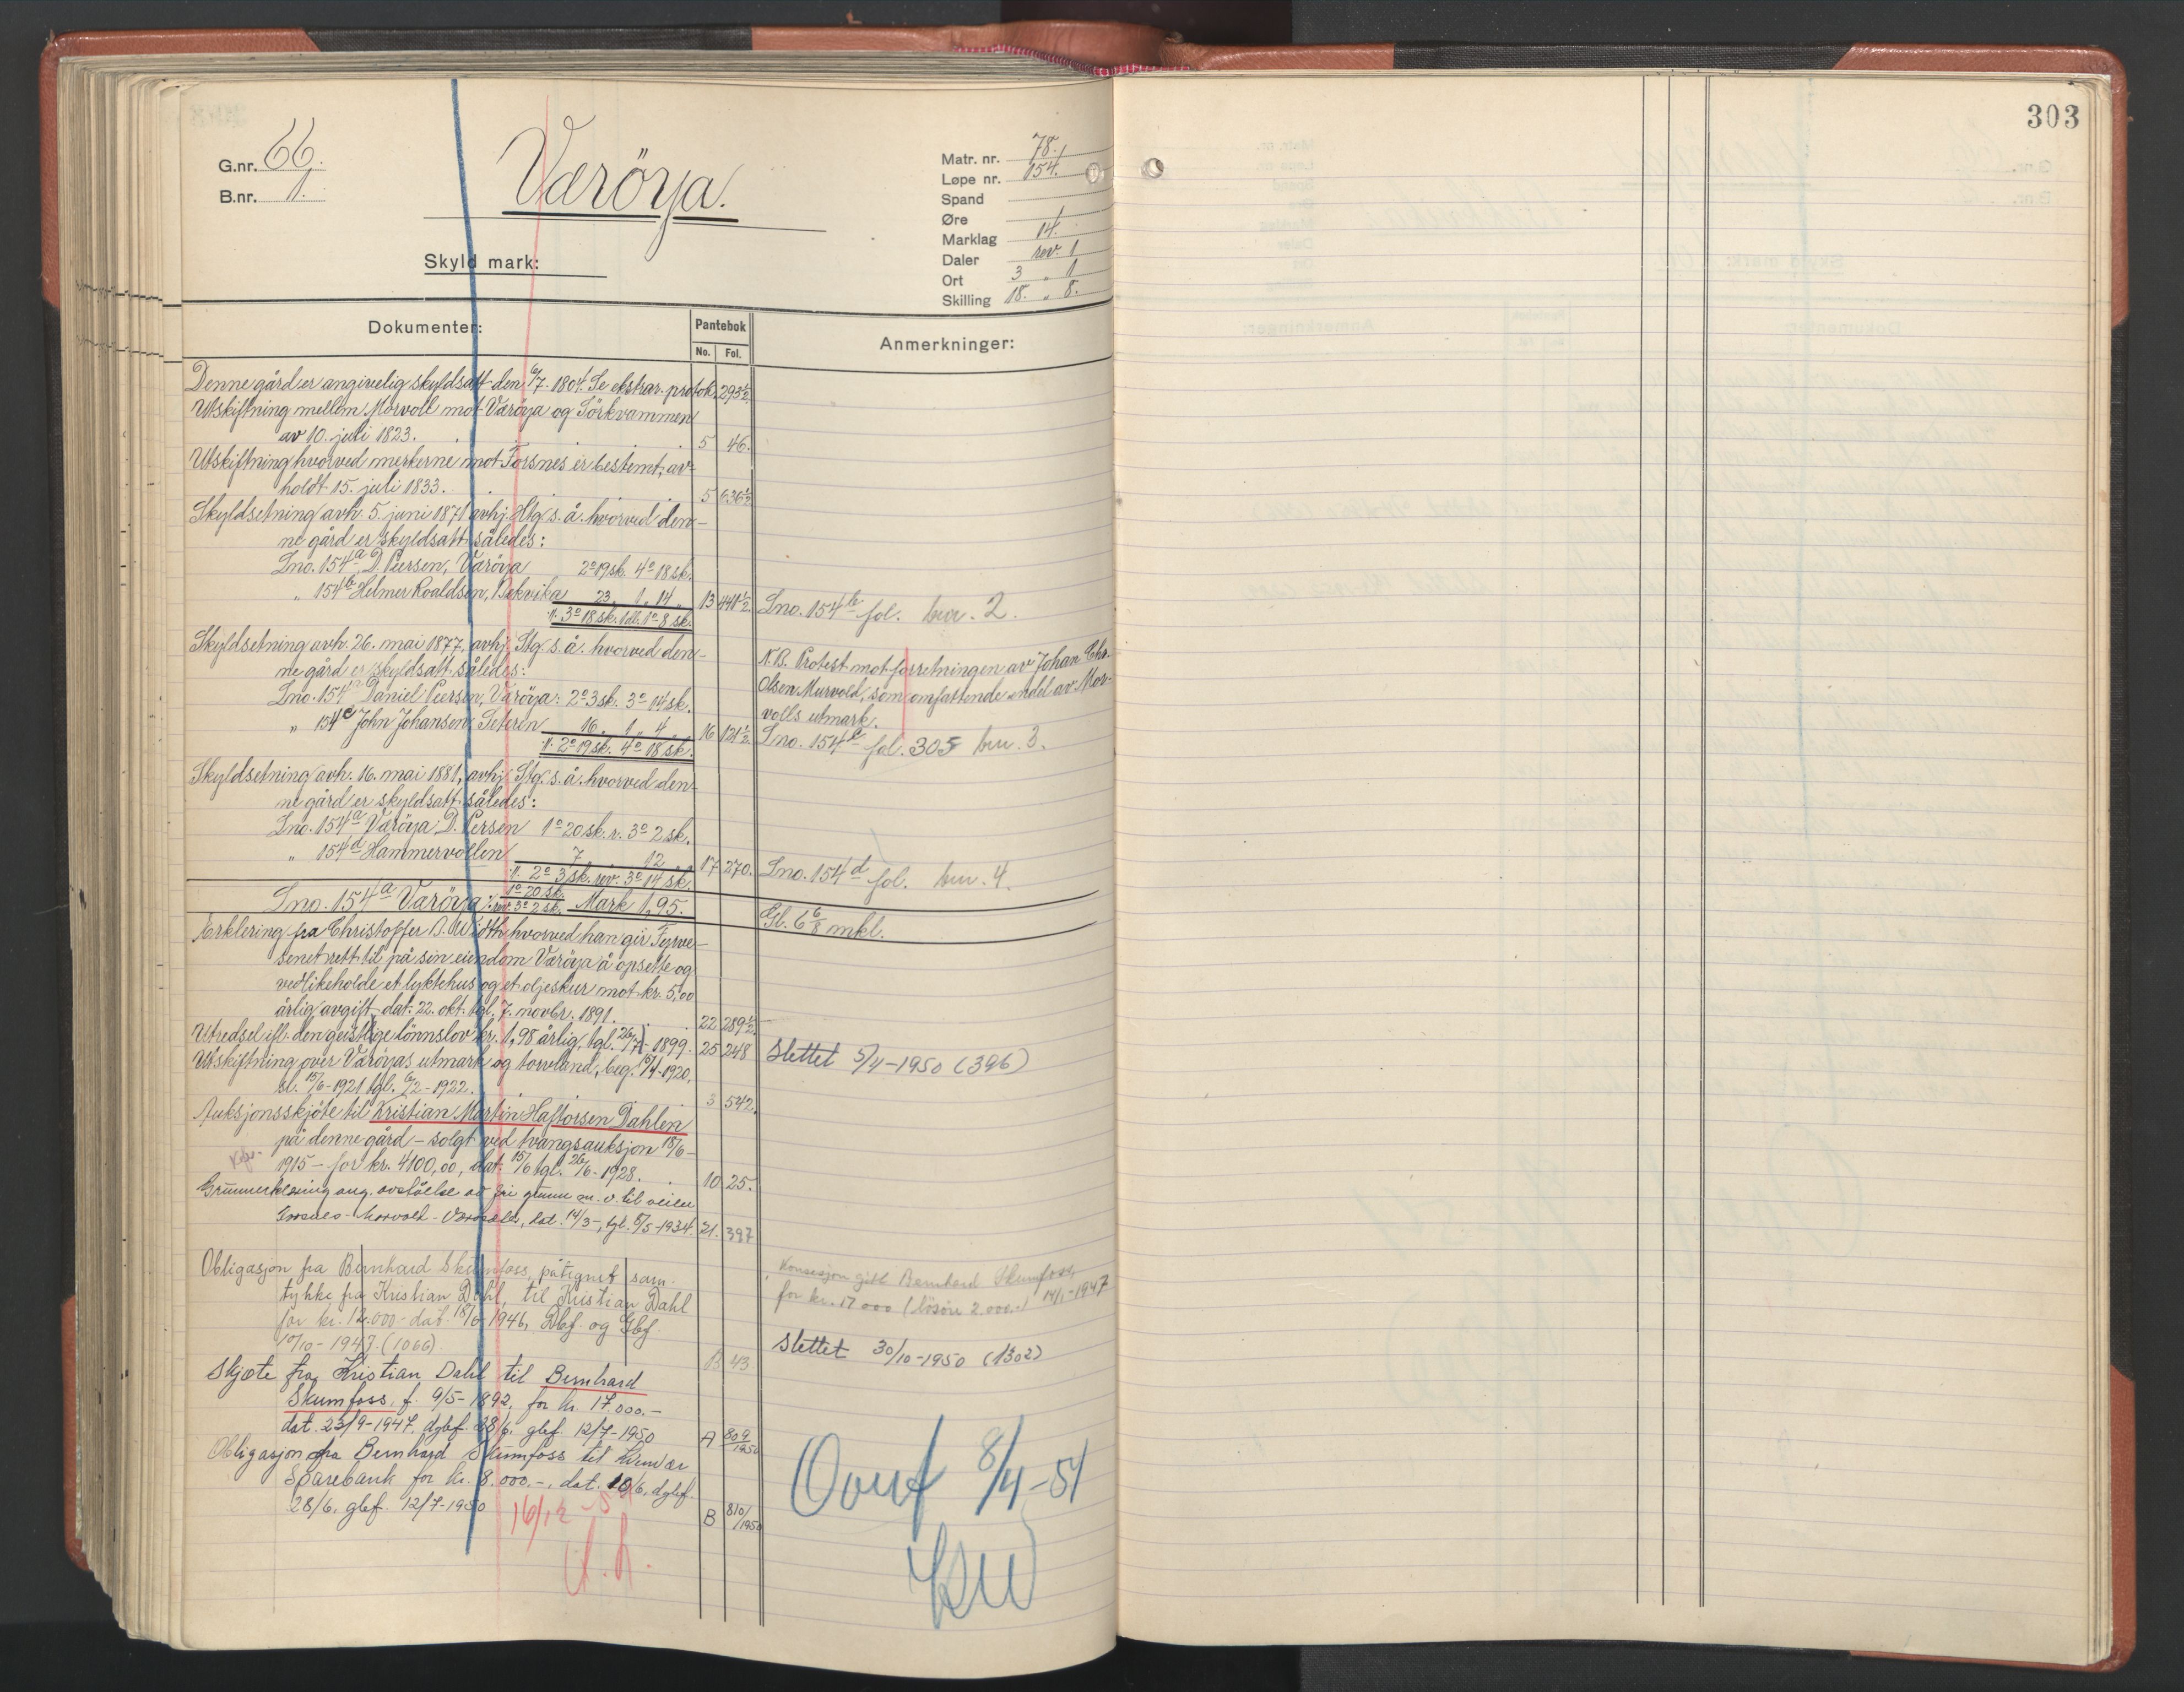 303
G.nr. 66.
B.nr. 1.
Væröya.
Skyld mark:
Matr. nr. 78.
Løpe nr. 154.
Spand
Øre
Marklag 14.
Daler rev. 1
Ort 3 „ 1
Skilling 18. „ 8.
Dokumenter:
Pantebok
No. Fol.
Anmerkninger:
Denne gård er angivelig skyldsatt den 6/7-1804. Se ekstrar. protok. 293 1/2.
Utskiftning mellem Morvoll mot Varöya og Sörkvammen
av 10. juli 1823. 5 46.
Utskiftning hvorved merkerne mot Forsnes er bestemt, av-
holdt 15. juli 1833. 5 636 1/2
Skyldsetning avh. 5. juni 1871 avhj. Htg. s. å. hvorved den-
ne gård er skyldsatt således:
Lno. 154a D. Persen, Varöya 2o 19 sk. 4o 18 sk.
„ 154b Helmer Roaldsen, Bekvika 23 „ 1 „ 14 „ 13 441 1/2. Lno. 154b fol. bnr. 2.
11. 3o 18 sk. 1 dl. 1o 8 sk.
Skyldsetning avh. 26. mai 1877, avhj. Stg. s. å. hvorved den-
ne gård er skyldsatt således:
N.B. Protest mot forretningen av Johan Chr.
Lno. 154a Daniel Persen, Varöya: 2o 3 sk. 3o 14 sk.
Olsen Murvold, som omfattende endel av Mor-
volls utmark.
„ 154c John Johansen, Seteren 16 „ 1 „ 4 „ 16 121 1/2. Lno. 154c fol. 305 bnr. 3.
11. 2o 19 sk. 4o 18 sk.
Skyldsetning avh. 16. mai 1881, avhj. Stg. s. å. hvorved den-
ne gård er skyldsatt således:
Lno. 154a Varöya D. Persen 1o 20 sk. r. 3o 2 sk.
„ 154d Hammervollen 7 12 „ 17 270. Lno. 154d fol. bnr. 4.
11. 2o 3 sk. rev. 3o 14 sk.
Lno. 154a Varöya: 1o 20 sk. rev. 3o 2 sk. Mark 1,95. Gl. 6 6/8 mkl.
Erklering fra Christoffer B. Width hvorved han gir Fyrve-
senet rett til på sin eiendom Varöya å opsette og
vedlikeholde et lyktehus og et oljeskur mot kr. 5,00
årlig avgift, dat. 22. okt. tgl. 7. novbr. 1891. 22 289 1/2.
Utredsel ifl. den geistlige lönnslov kr. 1,98 årlig, tgl. 26/7-1899. 25 248 Slettet 5/4-1950 (396)
Utskiftning over Varöyas utmark og torvland, beg. 15/4-1920,
sl. 15/6-1921 tgl. 6/2-1922. 3 542.
Auksjonsskjöte til Kristian Martin Haftorsen Dahlen
på denne gård - solgt ved tvangsauksjon 18/6-
1915 - for kr. 4100,00, dat. 15/6 tgl. 26/6-1928. 10 25.
Grunnerklæring ang. avståelse av fri grunn m. v. til veien
Forsnes - Morvold - , dat. 14/3-, tgl. 5/5-1934. 21. 397
Obligasjon fra Bernhard Skumfoss, påtegnet sam-
tykke fra Kristian Dahl, til Kristian Dahl
for kr. 12.000 - dat. 18/6-1946, Dbf. og Gbf.
10/10-1947. (1066) B 43
Konsesjon gitt Bernhard Skumfoss,
for kr. 17 000 (lösöre 2.000.-) 14/1-1947
Slettet 30/10-1950 (1302)
Skjøte fra Kristian Dahl til Bernhard
Skumfoss, f. 9/5-1892, for kr. 17.000.-
dat. 23/9-1947, dgbf. 28/6, gbf. 12/7-1950 A 809/1950
Obligasjon fra Bernhard Skumfoss til
Sparebank for kr. 8.000.-, dat. 10/6, dgbf.
28/6, gbf. 12/7-1950 B 810/1950
16/12-5
Overf 8/4-54